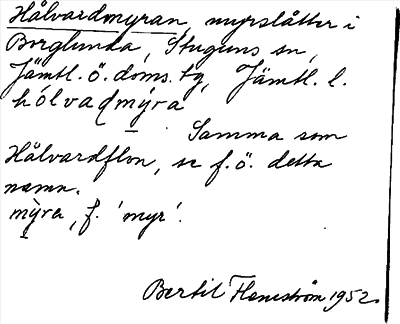 Hålvardmyran, myrslåtter i
Borglunda, Stuguns sn,
Jämtl. ö. doms. tg, Jämtl. l.
hólvaḍmy̱ra
Samma som
Hålvardflon, se f. ö. detta
namn.
mỳ̱ra, f. 'myr'.
Bertil Flemström 1952.